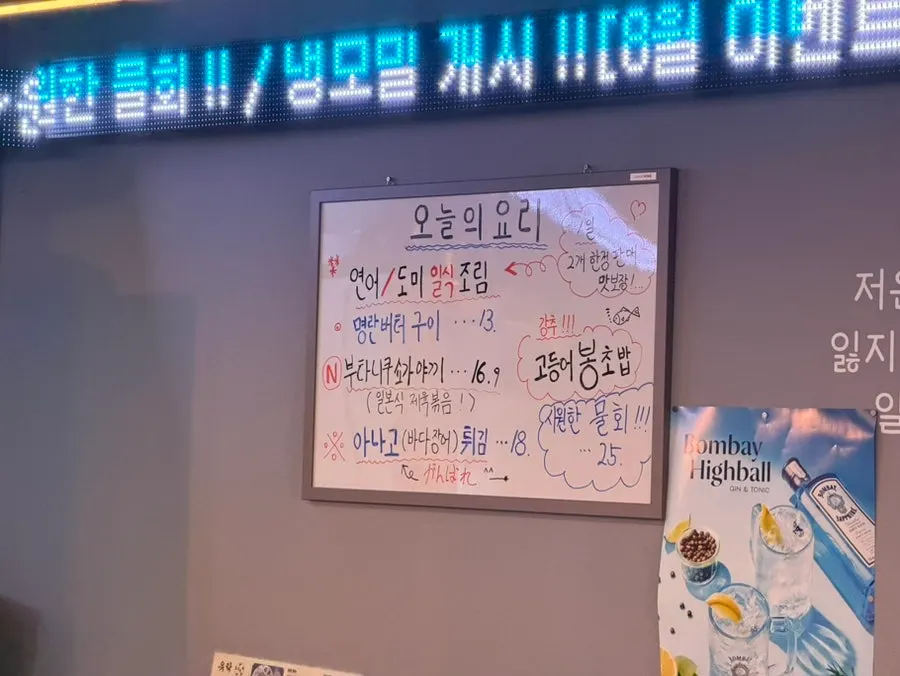 원한 물회 !! / 냉모밀 개시 !! [8월 이벤트
오늘의 요리
연어/도미 일식 조림
1일
2개 한정 판매
맛보장!...
명란버터 구이 ···13.
N 부타니쿠 쇼가야끼 ···16.9
(일본식 제육볶음!)
※ 아나고(바다장어) 튀김 ···18.
がんばれ ^^
강추!!!
고등어 봉초밥
시원한 물회!!!
··· 25.
저는
잃지
일
Bombay
Highball
GIN & TONIC
BOMBAY
SAPPHIRE
BOMBAY